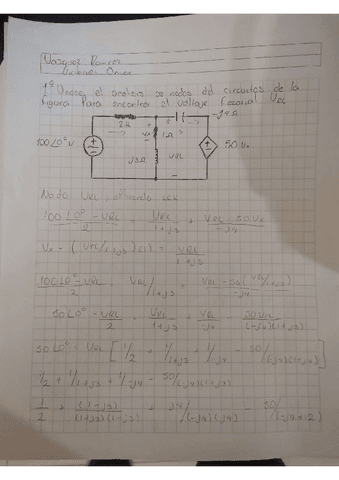 Vazquez Ramos
Omar
1º Usese el analisis de nodos del circuito de la
figura Para encontrar el Voltaje Fasorial VRL
2Ω -j4Ω
100∠0° V Vx 1Ω 50 Vx
j3Ω VRL
Nodo VRL, LCK
100∠0° - VRL / 2 = VRL / 1+j3 + VRL - 50Vx / -j4
Vx = (VRL/1+j3)(1) = VRL / 1+j3
100∠0° - VRL / 2 = VRL/1+j3 + VRL - 50(VRL/1+j3) / -j4
50∠0° - VRL / 2 = VRL / 1+j3 + VRL / -j4 - 50VRL / (-j4)(1+j3)
50∠0° = VRL [ 1/2 + 1/1+j3 + 1/-j4 - 50/(-j4)(1+j3) ]
1/2 + 1/1+j3 + 1/-j4 - 50/(-j4)(1+j3)
1/2 + (1-j3) / (1+j3)(1-j3) + j4 / (-j4)(j4) - 50/(-j4+12)